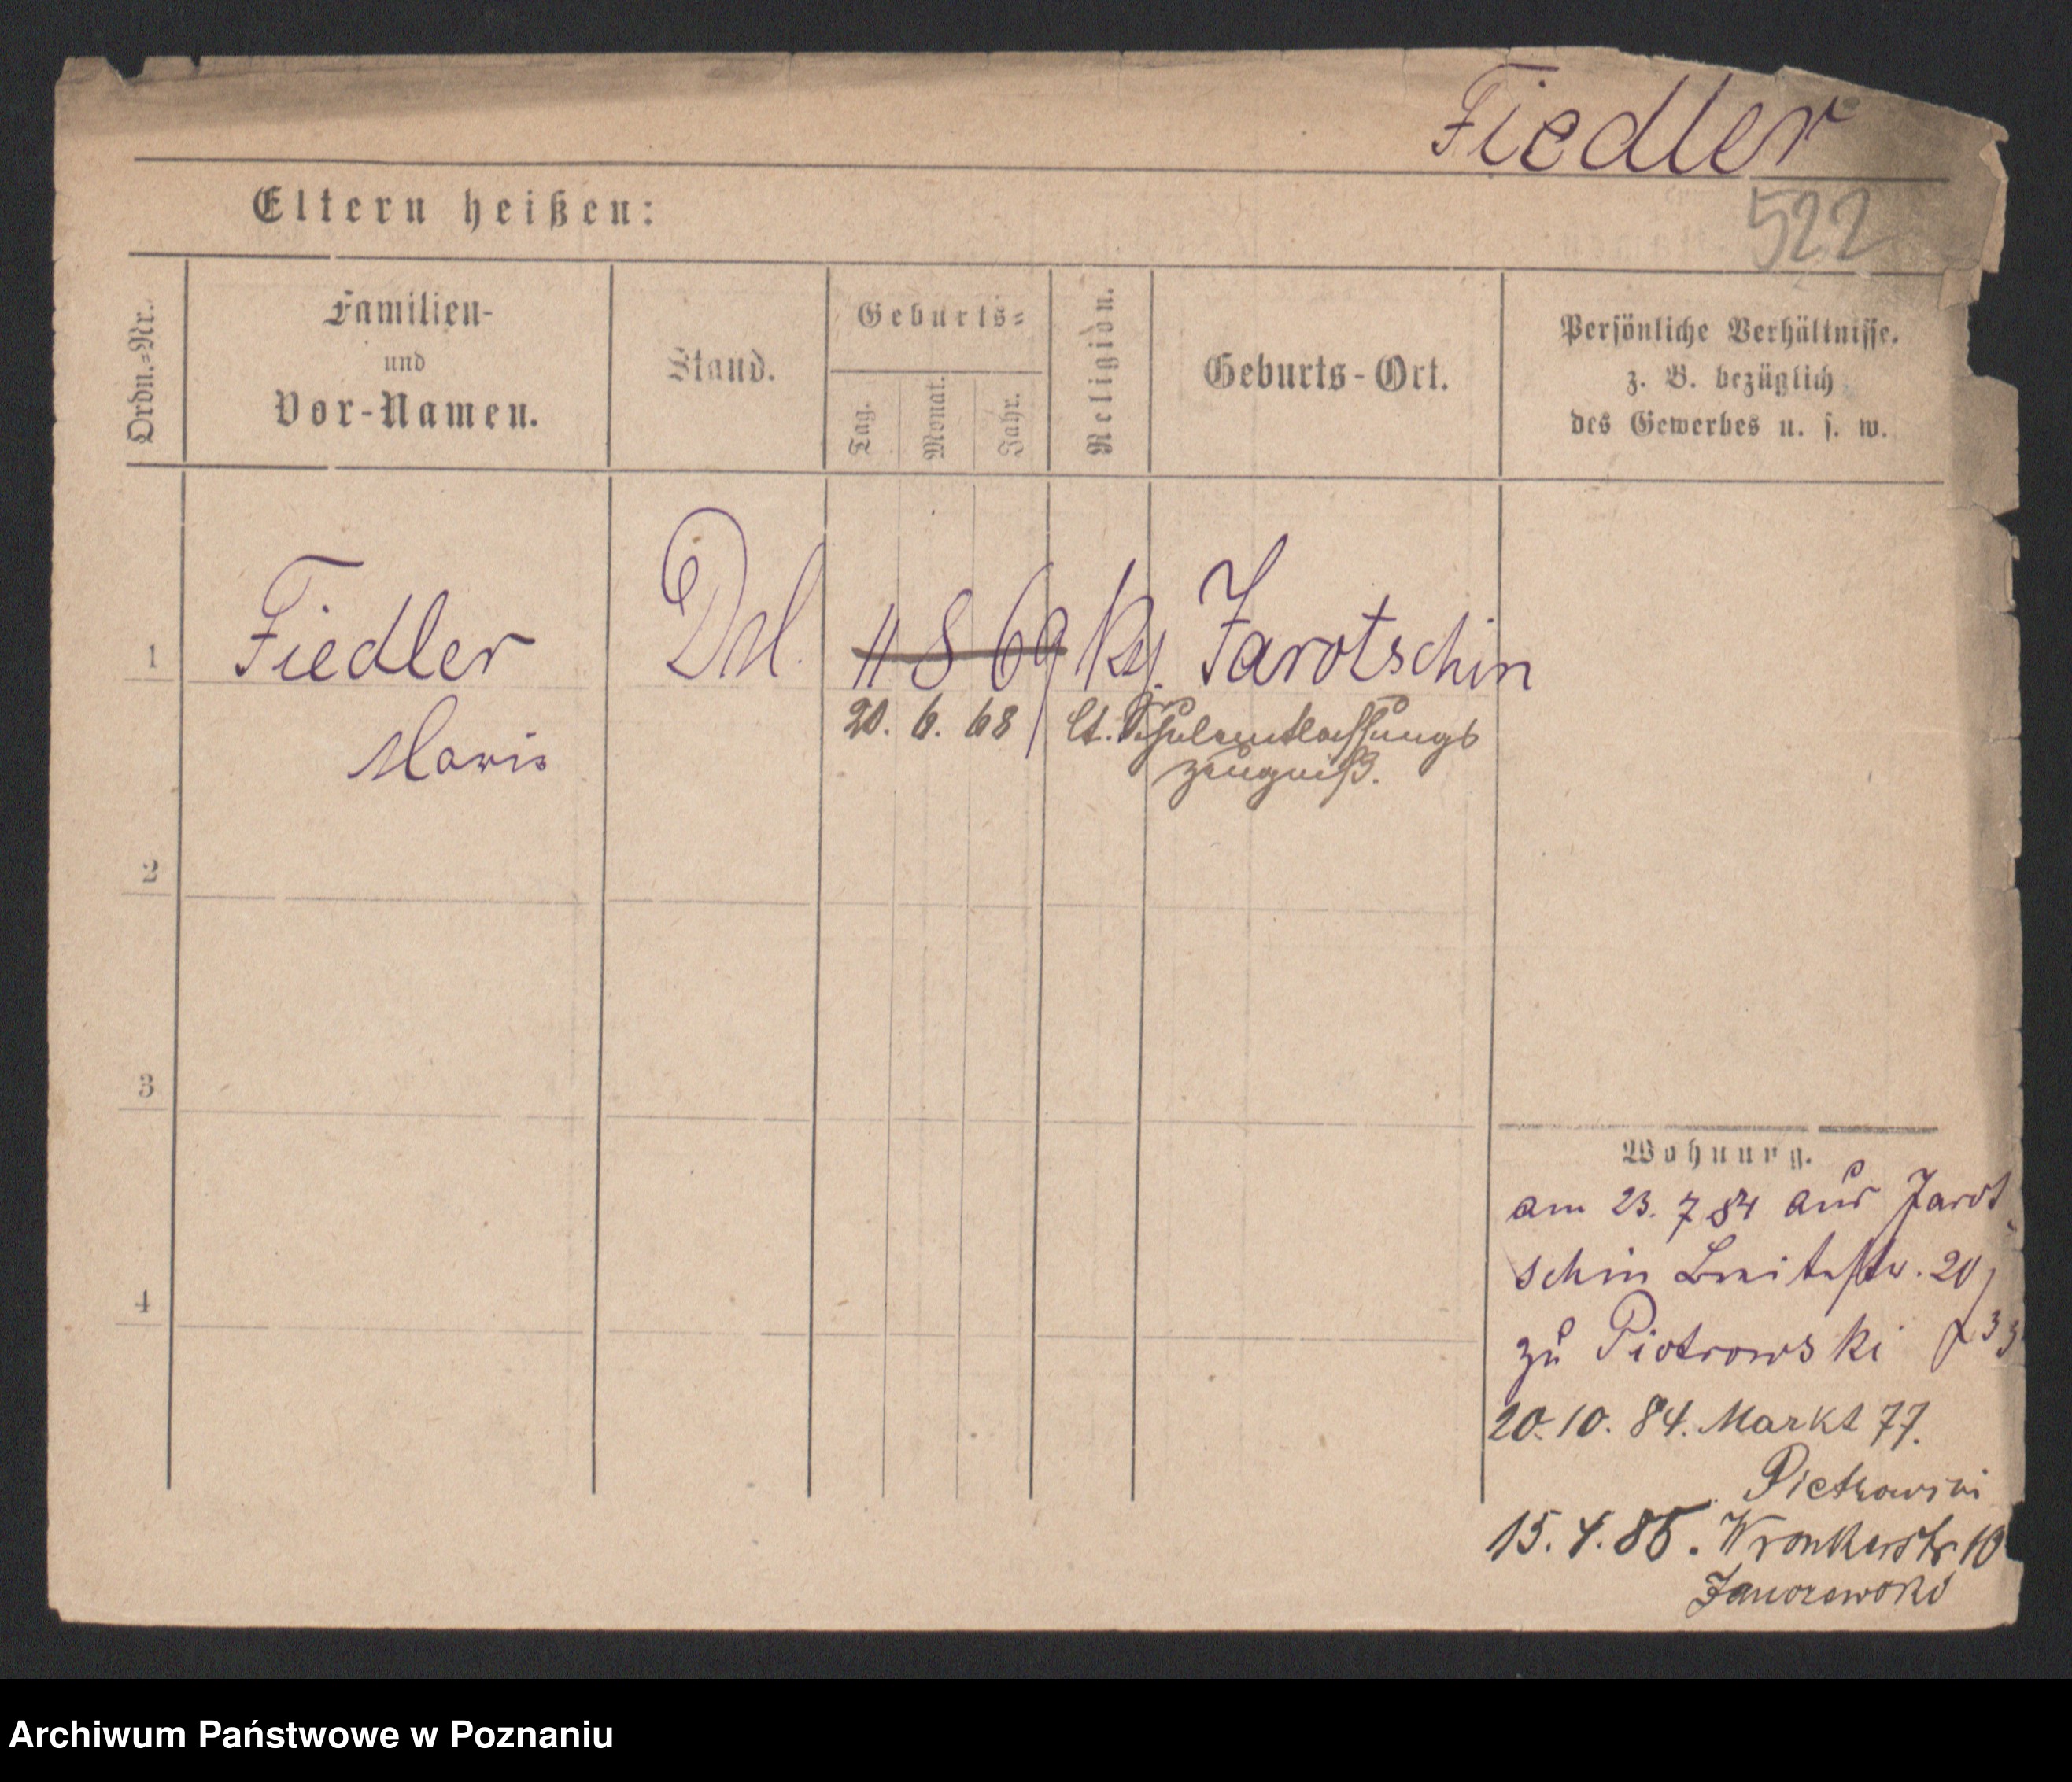 Fiedler
522
Eltern heißen:
Ordn.-Nr.
Familien-
und
Vor-Namen.
Stand.
Geburts-
Tag.
Monat.
Jahr.
Religion.
Geburts-Ort.
Persönliche Verhältnisse.
z. B. bezüglich
des Gewerbes u. s. w.
1
Fiedler
11 8 69
Jarotschin
Marie
20. 6. 68 lt. Schulentlassungs
zeugniß.
2
3
4
Wohnung.
am 23. 7 84 aus Jarot
schin Breitestr. 20
zu Piotrowski
20. 10. 84. Markt 77.
Piotrowski
15. 4. 85. Wronkerstr 10
Archiwum Państwowe w Poznaniu